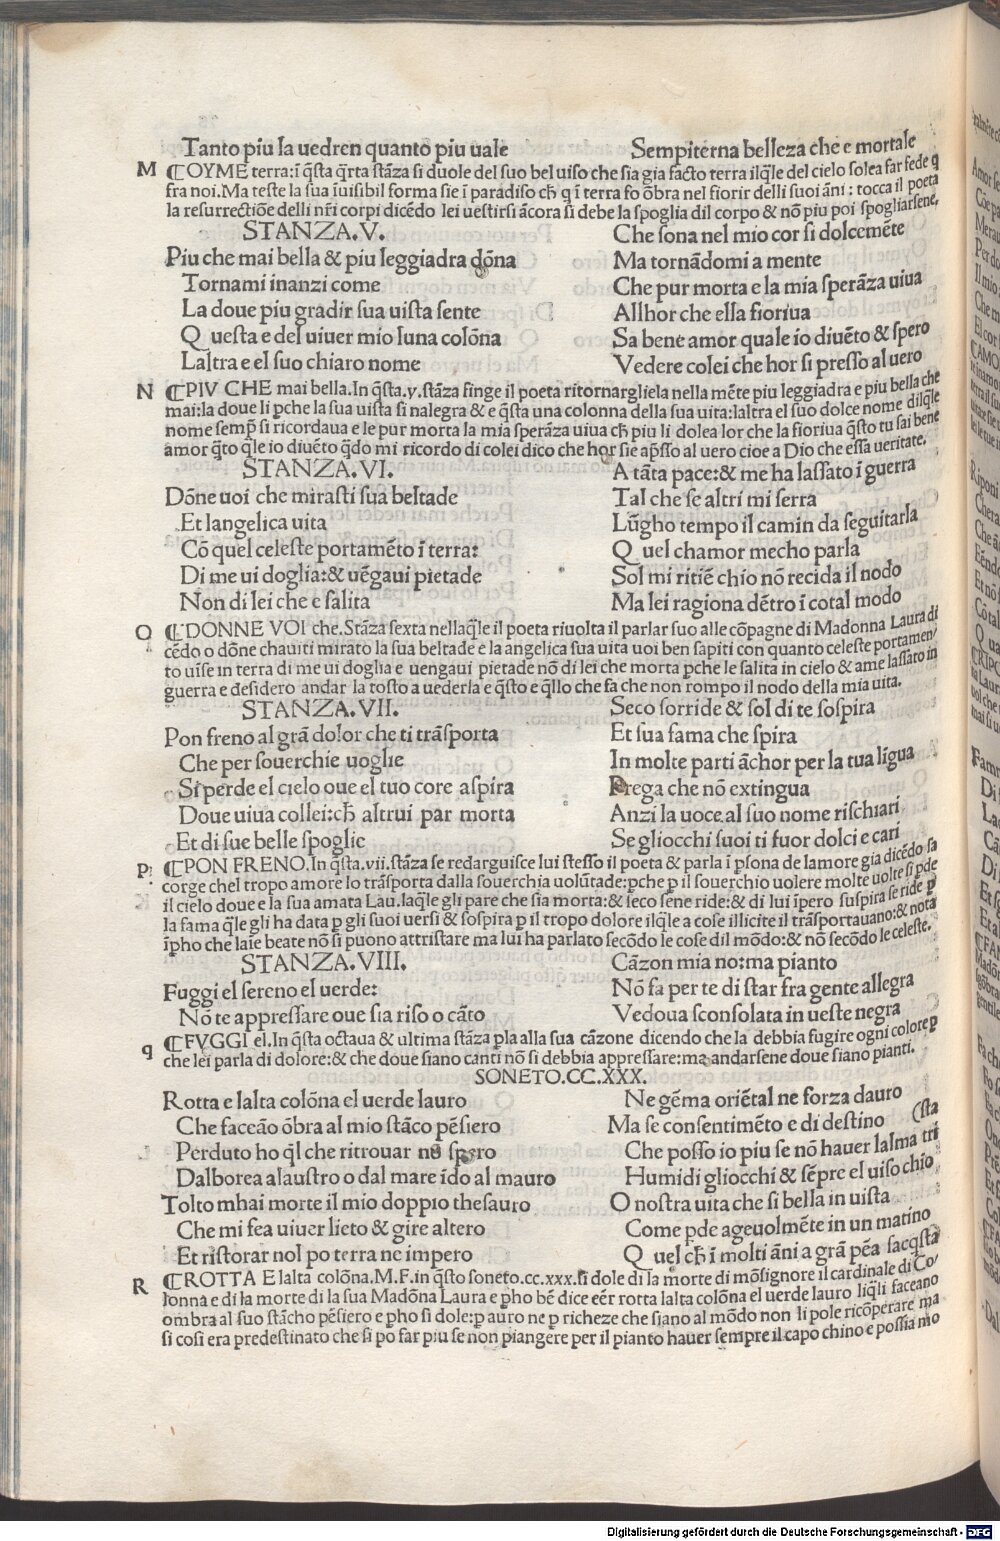 Tanto piu la uedren quanto piu uale
Sempiterna bellezza che e mortale
M ¶OYME terra:ī q̄sta q̄rta stāza si duole del suo bel uiso che sia gia facto terra ilq̄le del cielo solea far fede q̄
fra noi.Ma teste la sua īuisibil forma sie ī paradiso cħ q ī terra fo ōbra nel fiorir delli suoi āni : tocca il poeta
la resurrectiōe delli nr̄i corpi dicēdo lei uestirsi ācora si debe la spoglia dil corpo & nō piu poi spogliarsene.
STANZA.V.
Piu che mai bella & piu leggiadra dōna
Tornami inanzi come
La doue piu gradir sua uista sente
Q uesta e del uiuer mio luna colōna
Laltra e el suo chiaro nome
Che sona nel mio cor si dolcemēte
Ma tornādomi a mente
Che pur morta e la mia sperāza uiua
Allhor che ella fioriua
Sa bene amor quale io diuēto & spero
Vedere colei che hor si presso al uero
N ¶PIV CHE mai bella.In q̄sta.v.stāza finge il poeta ritornargliela nella mēte piu leggiadra e piu bella che
mai:la doue li p̄che la sua uista si nalegra & e q̄sta una colonna della sua uita:laltra el suo dolce nome dilq̄le
nome semp̄ si ricordaua e le pur morta la mia sperāza uiua cħ piu li dolea lor che la fioriua q̄sto tu sai bene
amor q̄to q̄le io diuēto q̄do mi ricordo di colei dico che hor sie ap̄sso al uero cioe a Dio che essa ueritate.
STANZA.VI.
Dōne uoi che mirasti sua beltade
Et langelica uita
Cō quel celeste portamēto ī terra:
Di me ui doglia:& uēgaui pietade
Non di lei che e salita
A tāta pace:& me ha lassato ī guerra
Tal che se altri mi serra
Lūgho tempo il camin da seguitarla
Q uel chamor mecho parla
Sol mi ritiē chio nō recida il nodo
Ma lei ragiona dētro ī cotal modo
O ¶DONNE VOI che.Stāza sexta nellaq̄le il poeta riuolta il parlar suo alle cōpagne di Madonna Laura di
cēdo o dōne chauiti mirato la sua beltade e la angelica sua uita uoi ben sapiti con quanto celeste portamen/
to uisse in terra di me ui doglia e uengaui pietade nō di lei che morta p̄che le salita in cielo & ame lassato in
guerra e desidero andar la tosto a uederla e q̄sto e q̄llo che fa che non rompo il nodo della mia uita.
STANZA.VII.
Pon freno al grā dolor che ti trāsporta
Che per souerchie uoglie
Si perde el cielo oue el tuo core aspira
Doue uiua collei:cħ altrui par morta
Et di sue belle spoglie
Seco sorride & sol di te sospira
Et sua fama che spira
In molte parti āchor per la tua līgua
Prega che nō extingua
Anzi la uoce al suo nome rischiari
Se gliocchi suoi ti fuor dolci e cari
P: ¶PON FRENO.In q̄sta.vii.stāza se redarguisce lui stesso il poeta & parla ī p̄sona de lamore gia dicēdo sa
corge chel tropo amore lo trāsporta dalla souerchia uolūtade:pche p il souerchio uolere molte uolte si pde
il cielo doue e la sua amata Lau.laqle gli pare che sia morta:& seco sene ride:& di lui īpero suspira se ride p
la fama q̄le gli ha data p gli suoi uersi & sospira p il tropo dolore ilq̄le a cose illicite il trāsportauano:& nota
īpho che laie beate nō si puono attristare ma lui ha parlato secōdo le cose dil mōdo:& nō secōdo le celeste.
STANZA.VIII.
Fuggi el sereno el uerde:
Nō te appressare oue sia riso o cāto
Cāzon mia no:ma pianto
Nō fa per te di star fra gente allegra
Vedoua sconsolata in ueste negra
q ¶FVGGI el.In q̄sta octaua & ultima stāza pla alla sua cāzone dicendo che la debbia fugire ogni colore p
che lei parla di dolore:& che doue siano canti nō si debbia appressare:ma andarsene doue siano pianti.
SONETO.CC.XXX.
Rotta e lalta colōna el uerde lauro
Che faceāo ōbra al mio stāco pēsiero
Perduto ho q̄l che ritrouar nō spero
Dalborea alaustro o dal mare īdo al mauro
Tolto mhai morte il mio doppio thesauro
Che mi fea uiuer lieto & gire altero
Et ristorar nol po terra ne impero
Ne gēma oriētal ne forza dauro
Ma se consentimēto e di destino (sta
Che posso io piu se nō hauer lalma tri
Humidi gliocchi & sēpre el uiso chio
O nostra uita che si bella in uista
Come pde ageuolmēte in un matino
Q uel cħ ī molti āni a grā pēa sacq̄sta
R ¶ROTTA E lalta colōna.M.F.in q̄sto soneto.cc.xxx.si dole di la morte di mōsignore il cardinale di Co/
lonna e di la morte di la sua Madōna Laura e pho bē dice eēr rotta lalta colōna el uerde lauro liq̄li faceano
ombra al suo stācho pēsiero e pho si dole:p auro ne p richeze che siano al mōdo non li pole ricōperare ma
si cosi era predestinato che si po far piu se non piangere per il pianto hauer sempre il capo chino e possia mo
Digitalisierung gefördert durch die Deutsche Forschungsgemeinschaft - DFG